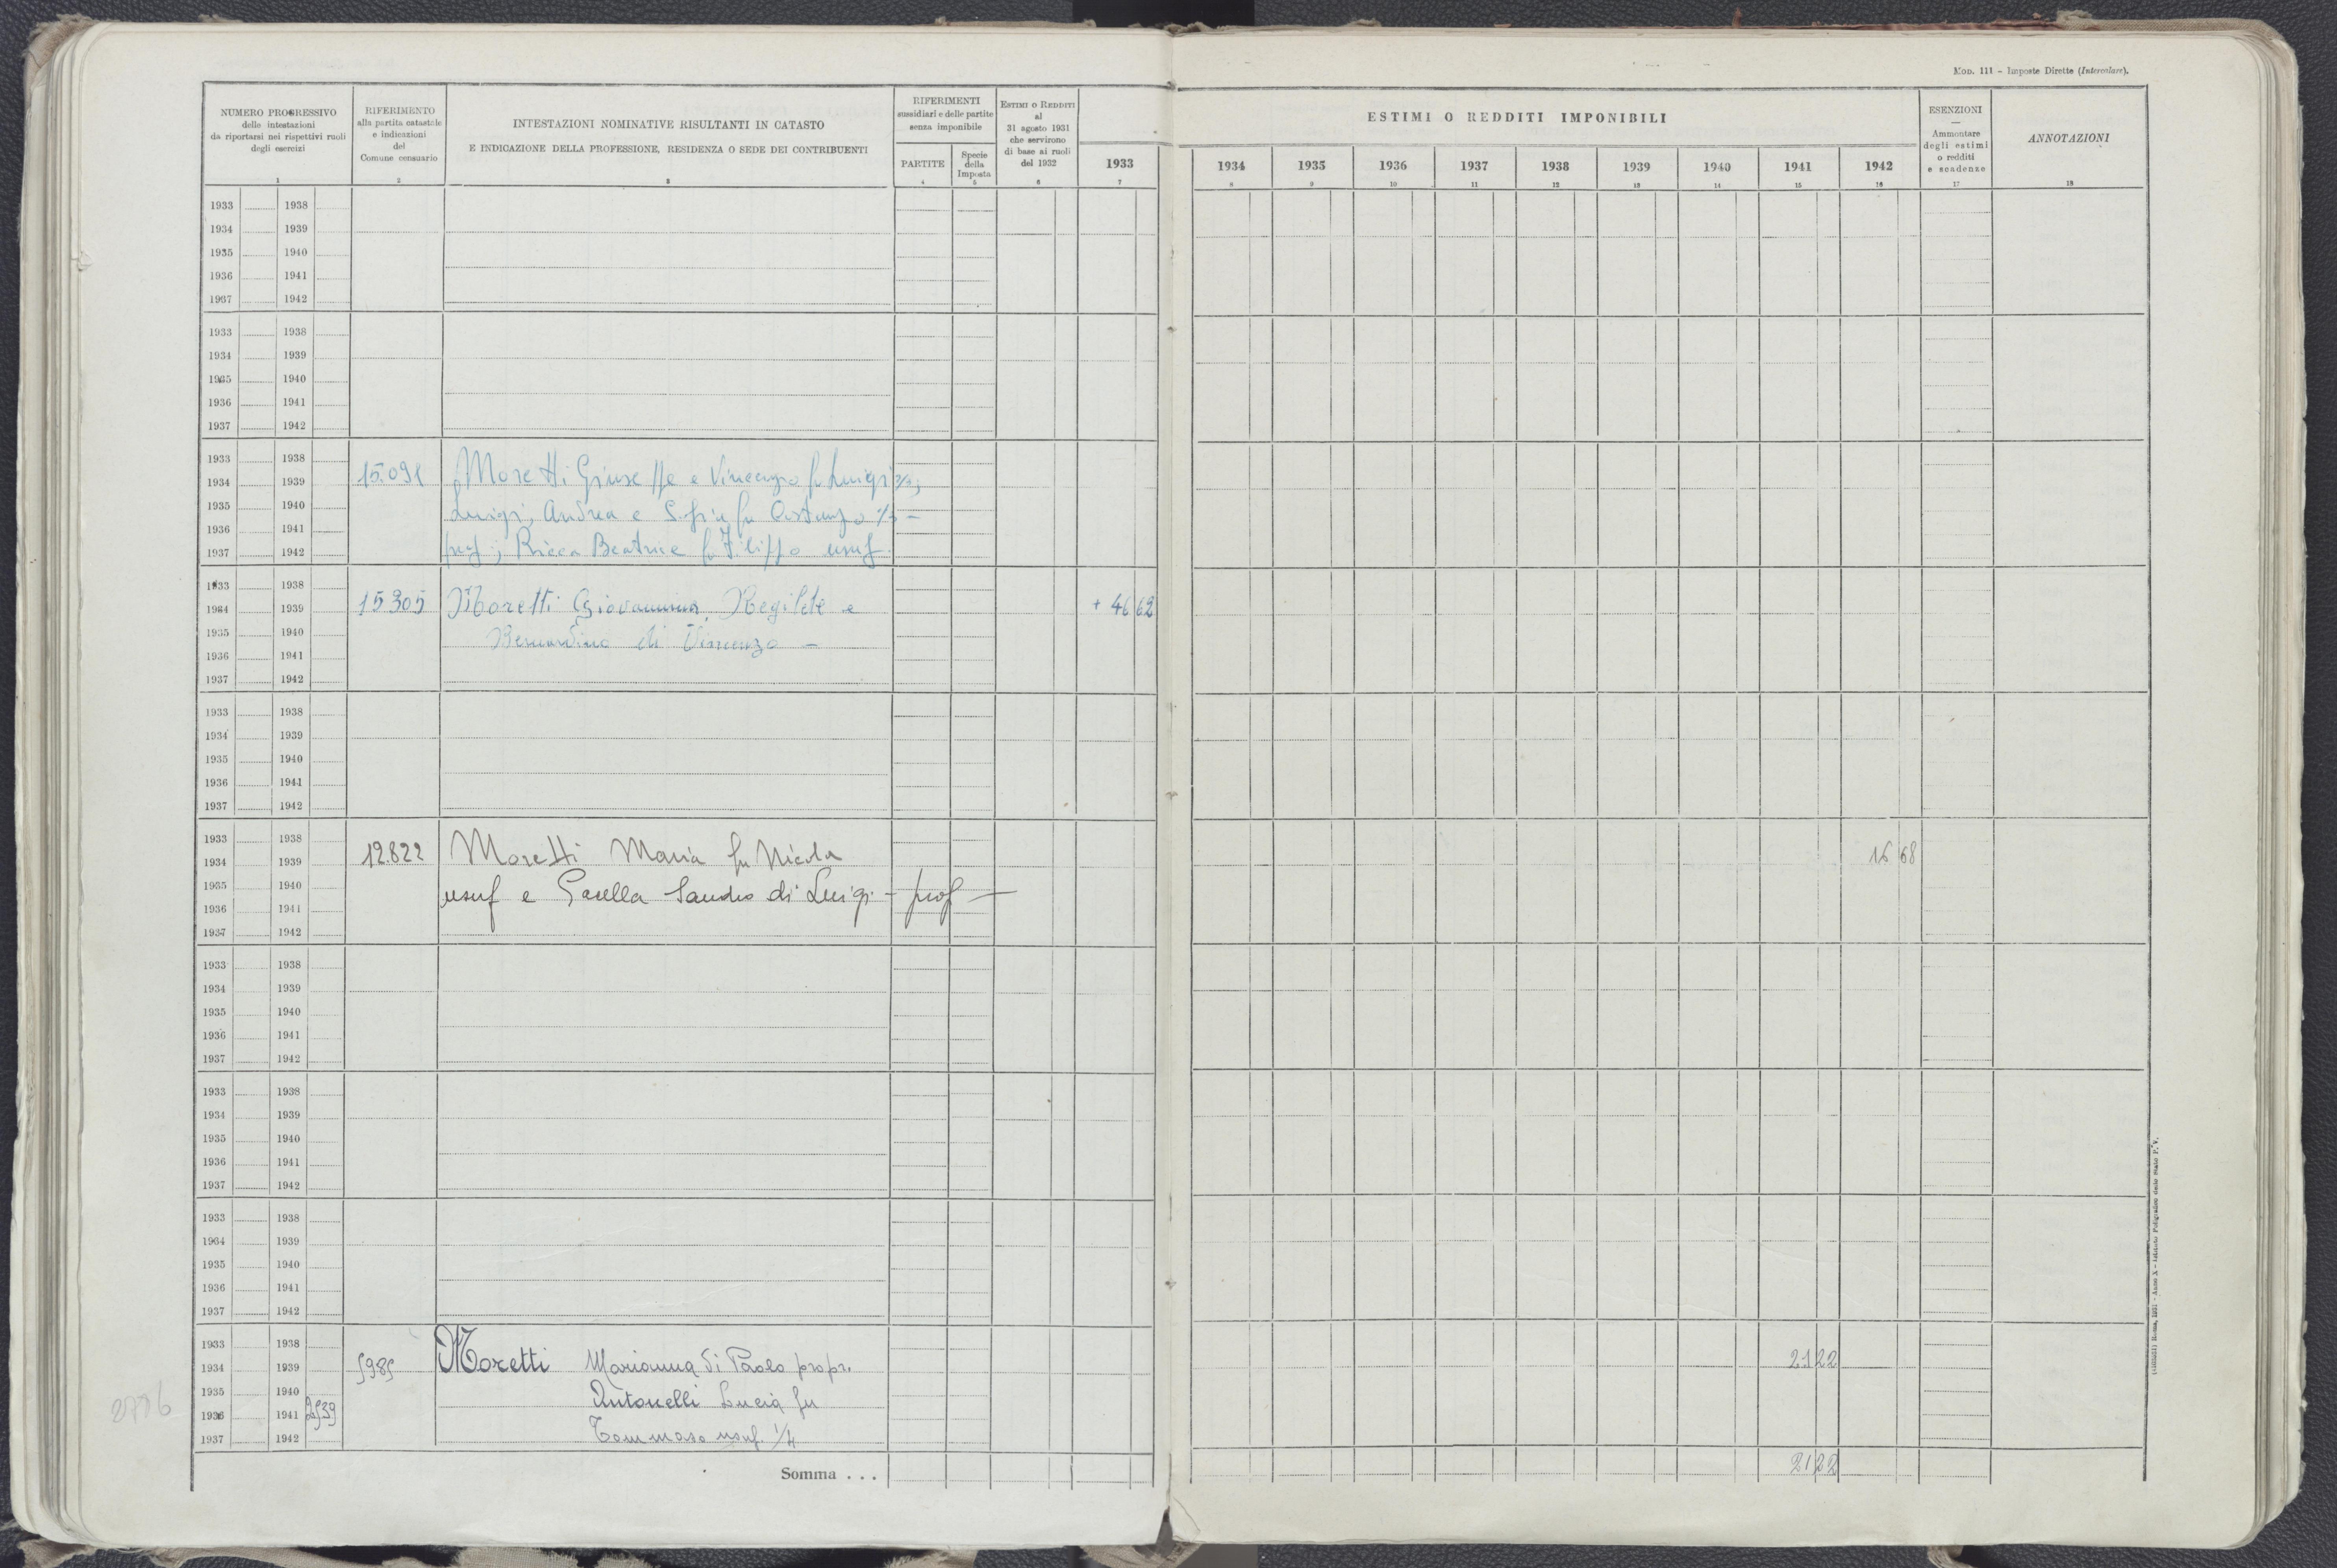 Mod. 111 - Imposte Dirette (Intercolare).
NUMERO PROGRESSIVO
delle intestazioni
da riportarsi nei rispettivi ruoli
degli esercizi
1
RIFERIMENTO
alla partita catastale
e indicazioni
del
Comune censuario
2
INTESTAZIONI NOMINATIVE RISULTANTI IN CATASTO
E INDICAZIONE DELLA PROFESSIONE, RESIDENZA O SEDE DEI CONTRIBUENTI
3
RIFERIMENTI
sussidiari e delle partite
senza imponibile
PARTITE
4
Specie
della
Imposta
5
Estimi o Redditi
al
31 agosto 1931
che servirono
di base ai ruoli
del 1932
6
1933
7
ESTIMI O REDDITI IMPONIBILI
1934 1935 1936 1937 1938 1939 1940 1941 1942
8 9 10 11 12 13 14 15 16
ESENZIONI
—
Ammontare
degli estimi
o redditi
e scadenze
17
ANNOTAZIONI
18
1933 1938
1934 1939
1935 1940
1936 1941
1967 1942
1933 1938
1934 1939
1935 1940
1936 1941
1937 1942
1933 1938
1934 1939 15.091 Moretti Giuseppe e Vincenzo fu Luigi
1935 1940 Luigi, Andrea e Sofia fu Costanzo 1/3 -
1936 1941
1937 1942 prop; Ricca Beatrice fu Filippo usuf.
1933 1938
1934 1939 15305 Moretti Giovanna, Regilde e + 46 62
1935 1940 Bernardino di Vincenzo -
1936 1941
1937 1942
1933 1938
1934 1939
1935 1940
1936 1941
1937 1942
1933 1938
1934 1939 12.822 Moretti Maria fu Nicola 16 68
1935 1940 usuf e Sandro di Luigi - prop -
1936 1941
1937 1942
1933 1938
1934 1939
1935 1940
1936 1941
1937 1942
1933 1938
1934 1939
1935 1940
1936 1941
1937 1942
1933 1938
1964 1939
1935 1940
1936 1941
1937 1942
1933 1938
1934 1939 5985 Moretti Marianna di Paolo propr. 21 22
1935 1940 Antonelli Lucia fu
1936 1941 2539
1937 1942 Tommaso usuf. 1/4
Somma . . . 21 22